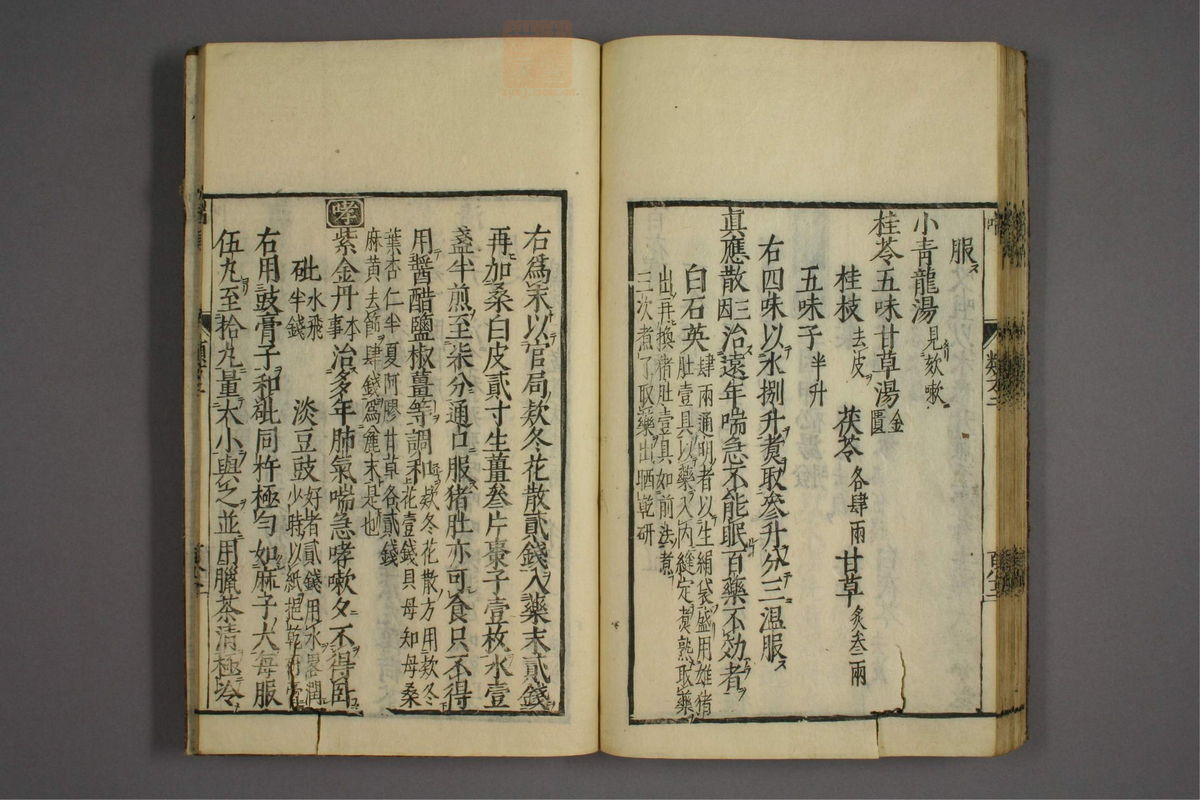 服ス
小靑龍湯見欬嗽
桂苓五味甘草湯金匱
桂枝去皮 茯苓各肆兩 甘草炙叁兩
五味子半升
右四味以水捌升煑取叄升分三温服ス
眞應散三因治遠年喘急不能眠百藥不効者
白石英肆兩通明者以生絹袋盛用雄猪
肚壹具以藥入内縫定煑熟取藥
出再換猪肚壹具如前法煮
三次煮了取藥出晒乾研
右爲末以官局欵冬花散貳錢入藥末貳錢
再加桑白皮貳寸生薑叁片棗子壹枚水壹
盞半煎至柒分通口服猪肚亦可食只不得
用醬醋鹽椒薑等調和欵冬花散方用欵冬
花壹錢貝母知母桑
葉杏仁半夏阿膠甘草各貳錢
麻黄去節肆錢爲麁末是也
哮紫金丹本事治多年肺氣喘急哮嗽夕不得卧
砒水飛半錢 淡豆豉好者貳錢用水畧潤
少時以紙挹乾研膏
右用豉膏子和砒同杵極勻如麻子大每服
伍丸至拾丸量大小與之並用臘茶清極冷